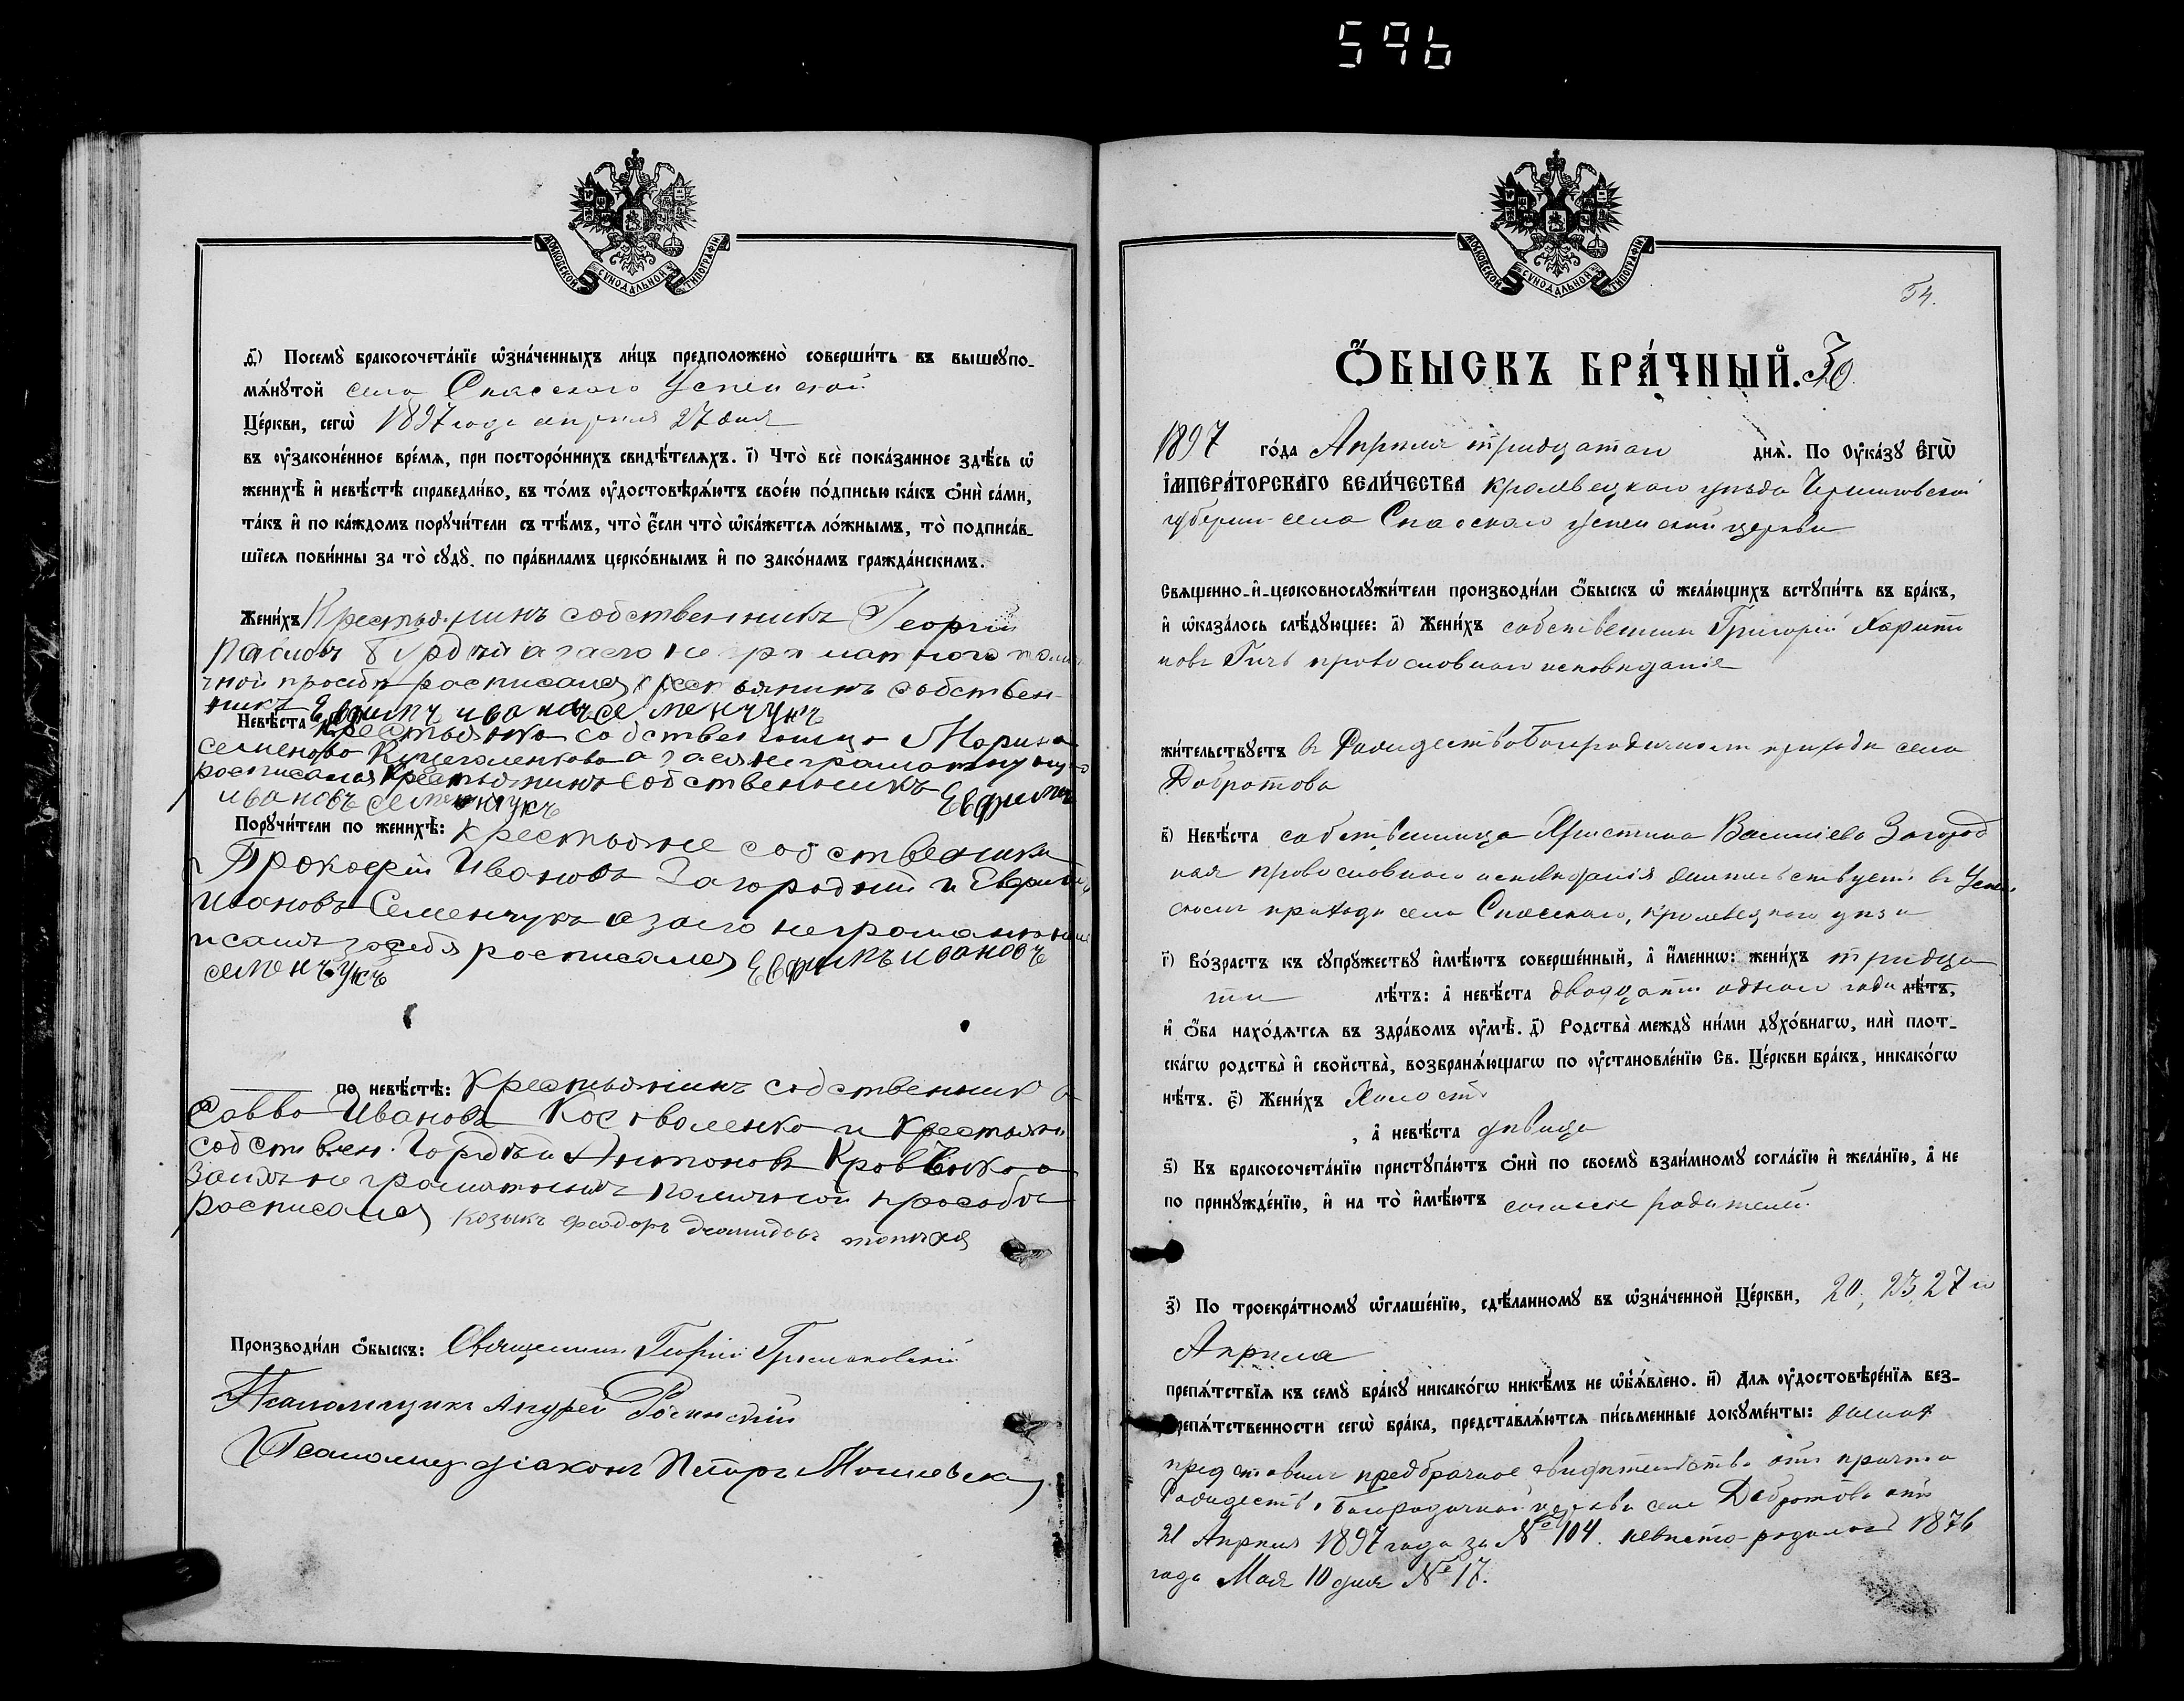 596
МОСКОВСКОЙ СѴНОДАЛЬНОЙ ТИПОГРАФІИ
ѳ҃) Посемꙋ̀ бракосочета́нїе ѡ҆зна́ченныхъ ли́цъ предположено̀ соверши́ть въ вышеꙋпо-
мѧ́нꙋтой села Спасского Успенской
Це́ркви, сегѡ̀ 1897 года апреля 27 дня
въ ᲂу҆законе́нное вре́мѧ, при посторо́ннихъ свидѣ́телѧхъ. і҃) Что̀ всѐ пока́занное здѣ́сь ѡ҆
женихѣ̀ и҆ невѣ́стѣ справедли́во, въ то́мъ ᲂу҆достовѣрѧ́ютъ свое́ю по́дписью ка́къ ѻ҆нѝ са́ми,
та́къ и҆ по ка́ждомъ порꙋчи́тели съ тѣ́мъ, что̀ є҆́сли что̀ ѡ҆ка́жетсѧ ло́жнымъ, то̀ подписа́в-
шїесѧ пови́нны за то̀ сꙋдꙋ̀ по пра́виламъ церко́внымъ и҆ по зако́намъ гражда́нскимъ.
Жени́хъ Крестьянинъ собственникъ Георгій
Павловъ а за его неграмотного по лич
ной просьбе росписался крестьянинъ собствен-
никъ Евфимъ ивановъ семенчукъ
Невѣ́ста крестьянка собственница Марина
семенова а за ея неграмотную
росписался Крестьянинъ собственникъ Евфимъ
ивановъ семенчукъ
Порꙋчи́тели по женихѣ̀: крестьяне собственики
Прокофій Ивановъ Загородній и Евфимъ
Ивановъ Семенчукъ а за его неграмотн
и самъ за себя росписался Евфимъ ивановъ
семенчукъ
по невѣ́стѣ: Крестьянинъ собственник
Савва Ивановъ Костоваленко и Крестьян
собствен. Гордѣй Антоновъ а
За ихъ неграмотныхъ по личной прособи
росписался козакъ федоръ демидовъ
Производи́ли ѻ҆́быскъ: Священникъ Георгій
Псаломщикъ Андрей
Псаломщ діаконъ Петръ
МОСКОВСКОЙ СѴНОДАЛЬНОЙ ТИПОГРАФІИ
54.
Ѻ҆́БЫСКЪ БРА́ЧНЫЙ. 30.
1897 го́да Апреля тридцатаго днѧ̀. По Оу҆ка́зꙋ Є҆ГѠ̀
І҆МПЕРА́ТОРСКАГО ВЕЛИ́ЧЕСТВА Кролевецкаго уезда Черниговской
губерніи села Спасского успенской церкви
Свѧщенно-и҆-церковнослꙋжи́тели производи́ли ѻ҆́быскъ ѡ҆ жела́ющихъ встꙋпи́ть въ бра́къ,
и҆ ѡ҆каза́лось слѣ́дꙋющее: а҃) Жени́хъ собственникъ Григорій Харито
новъ Гичъ православнаго исповеданія
жи́тельствꙋетъ в Рождество Богородичномъ приходе села
Добротова
в҃) Невѣ́ста собственница Христина Васильева Загород
ная православнаго исповеданія жительствуетъ въ Успен
скомъ приходе села Спасскаго, Кролевецкаго уезда
г҃) Во́зрастъ къ сꙋпрꙋ́жествꙋ и҆мѣ́ютъ соверше́нный, а҆ и҆́меннѡ: жени́хъ тридца
ти лѣ́тъ: а҆ невѣ́ста двадцати одного года лѣ́тъ,
и҆ ѻ҆́ба нахо́дѧтсѧ въ здра́вомъ ᲂу҆мѣ̀. д҃) Родства̀ междꙋ̀ ни́ми дꙋхо́внагѡ, илѝ плот-
ска́гѡ родства̀ и҆ свойства̀, возбранѧ́ющагѡ по ᲂу҆становле́нїю Св. Це́ркви бра́къ, никако́гѡ
нѣ́тъ. є҃) Жени́хъ Холостъ
, а҆ невѣ́ста девица
ѕ҃) Къ бракосочета́нїю пристꙋпа́ютъ ѻ҆нѝ по своемꙋ̀ взаи́мномꙋ согла́сїю и҆ жела́нїю, а҆ не
по принꙋжде́нїю, и҆ на то̀ и҆мѣ́ютъ согласіе родителей.
з҃) По троекра́тномꙋ ѡ҆глаше́нїю, сдѣ́ланномꙋ въ ѡ҆зна́ченной Це́ркви, 20, 23, 27 го
Апреля
препѧ́тствїѧ къ семꙋ̀ бра́кꙋ никако́гѡ никѣ́мъ не ѡ҆б̾ѧ́влено. и҃) Длѧ ᲂу҆достовѣре́нїѧ без-
препѧ́тственности сегѡ̀ бра́ка, представлѧ́ютсѧ пи́сьменные докꙋме́нты: жених
представилъ предбрачное свидетельство отъ причта
Рождество Богородичной церкви села Добротова отъ
21 Апреля 1897 года за № 104. невеста родилась 1876
года Мая 10 дня № 17.